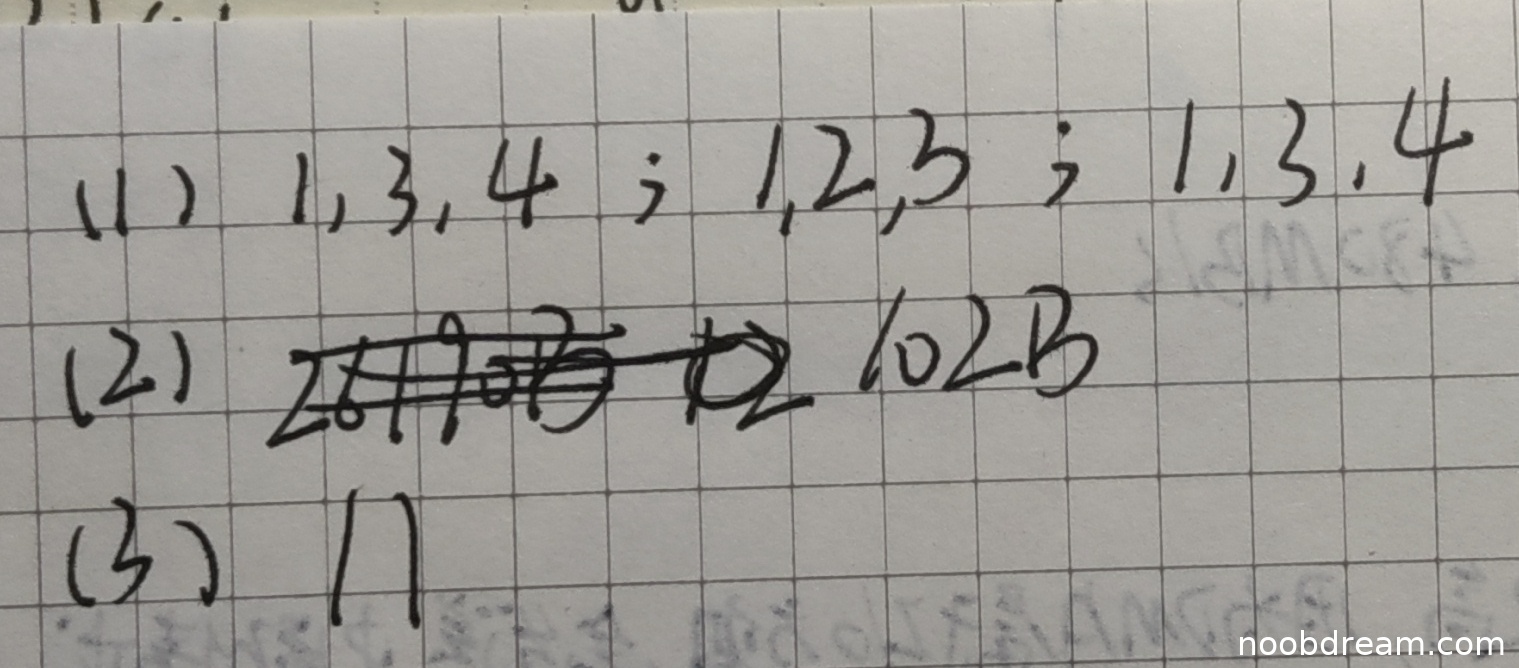 (1) 1,3,4 ; 1,2,3 ; 1,3,4
(2) 102B
(3) 17
noobdream.com